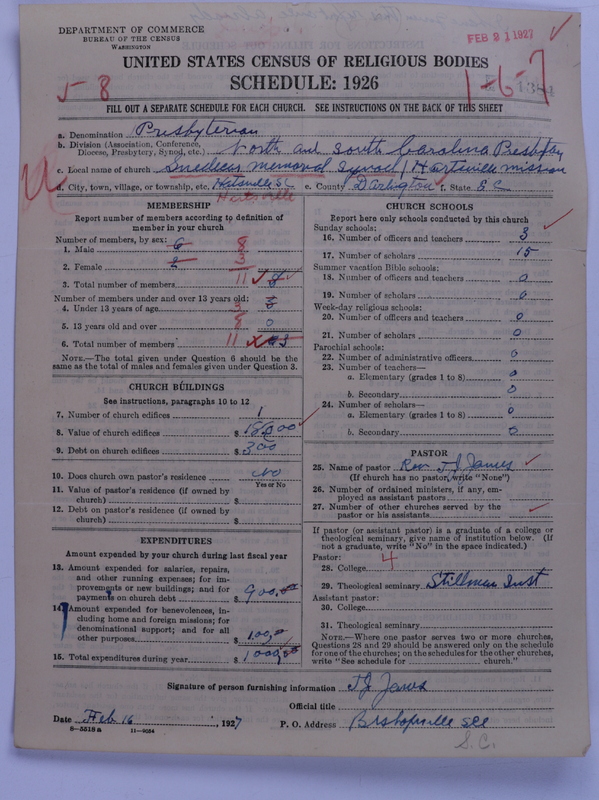 DEPARTMENT OF COMMERCE
BUREAU OF THE CENSUS
WASHINGTON
FEB 21 1927
UNITED STATES CENSUS OF RELIGIOUS BODIES
SCHEDULE: 1926
5-8
1-6-7
FILL OUT A SEPARATE SCHEDULE FOR EACH CHURCH. SEE INSTRUCTIONS ON THE BACK OF THIS SHEET
a. Denomination Presbyterian
b. Division (Association, Conference, Diocese, Presbytery, Synod, etc.) North and South Carolina Presbytery
c. Local name of church Snedecor Memorial Synod / Hartsville mission
d. City, town, village, or township, etc. Hartsville S C e. County Darlington f. State S C
Hartsville
MEMBERSHIP
Report number of members according to definition of
member in your church
Number of members, by sex:
1. Male 6 8
2. Female 2 3
3. Total number of members 11 8
Number of members under and over 13 years old:
4. Under 13 years of age 3
5. 13 years old and over 8 0
6. Total number of members 11 3
NOTE.—The total given under Question 6 should be
same as the total of males and females given under Question 3.
CHURCH BUILDINGS
See instructions, paragraphs 10 to 12
7. Number of church edifices 1
8. Value of church edifices $
9. Debt on church edifices $ 300
10. Does church own pastor's residence No
Yes or No
11. Value of pastor's residence (if owned by
church) $
12. Debt on pastor's residence (if owned by
church) $
EXPENDITURES
Amount expended by your church during last fiscal year
13. Amount expended for salaries, repairs,
and other running expenses; for im-
provements or new buildings; and for
payments on church debt $ 900.00
14. Amount expended for benevolences, in-
cluding home and foreign missions; for
denominational support; and for all
other purposes $ 100.00
15. Total expenditures during year $ 1000.00
CHURCH SCHOOLS
Report here only schools conducted by this church
Sunday schools:
16. Number of officers and teachers 3
17. Number of scholars 15
Summer vacation Bible schools:
18. Number of officers and teachers 0
19. Number of scholars 0
Week-day religious schools:
20. Number of officers and teachers 0
21. Number of scholars 0
Parochial schools:
22. Number of administrative officers 0
23. Number of teachers—
a. Elementary (grades 1 to 8) 0
b. Secondary 0
24. Number of scholars—
a. Elementary (grades 1 to 8) 0
b. Secondary 0
PASTOR
25. Name of pastor Rev T J James
(If church has no pastor, write "None")
26. Number of ordained ministers, if any, em-
ployed as assistant pastors
27. Number of other churches served by the
pastor or his assistants
If pastor (or assistant pastor) is a graduate of a college or
theological seminary, give name of institution below. (If
not a graduate, write "No" in the space indicated.)
Pastor:
28. College 4
29. Theological seminary Stillman Inst
Assistant pastor:
30. College
31. Theological seminary
NOTE.—Where one pastor serves two or more churches,
Questions 28 and 29 should be answered only on the schedule
for one of the churches; on the schedules for the other churches,
write "See schedule for church."
Signature of person furnishing information T J James
Official title
Date Feb 16, 1927 P. O. Address Bishopville
S.C.
8-5518a 11-9054